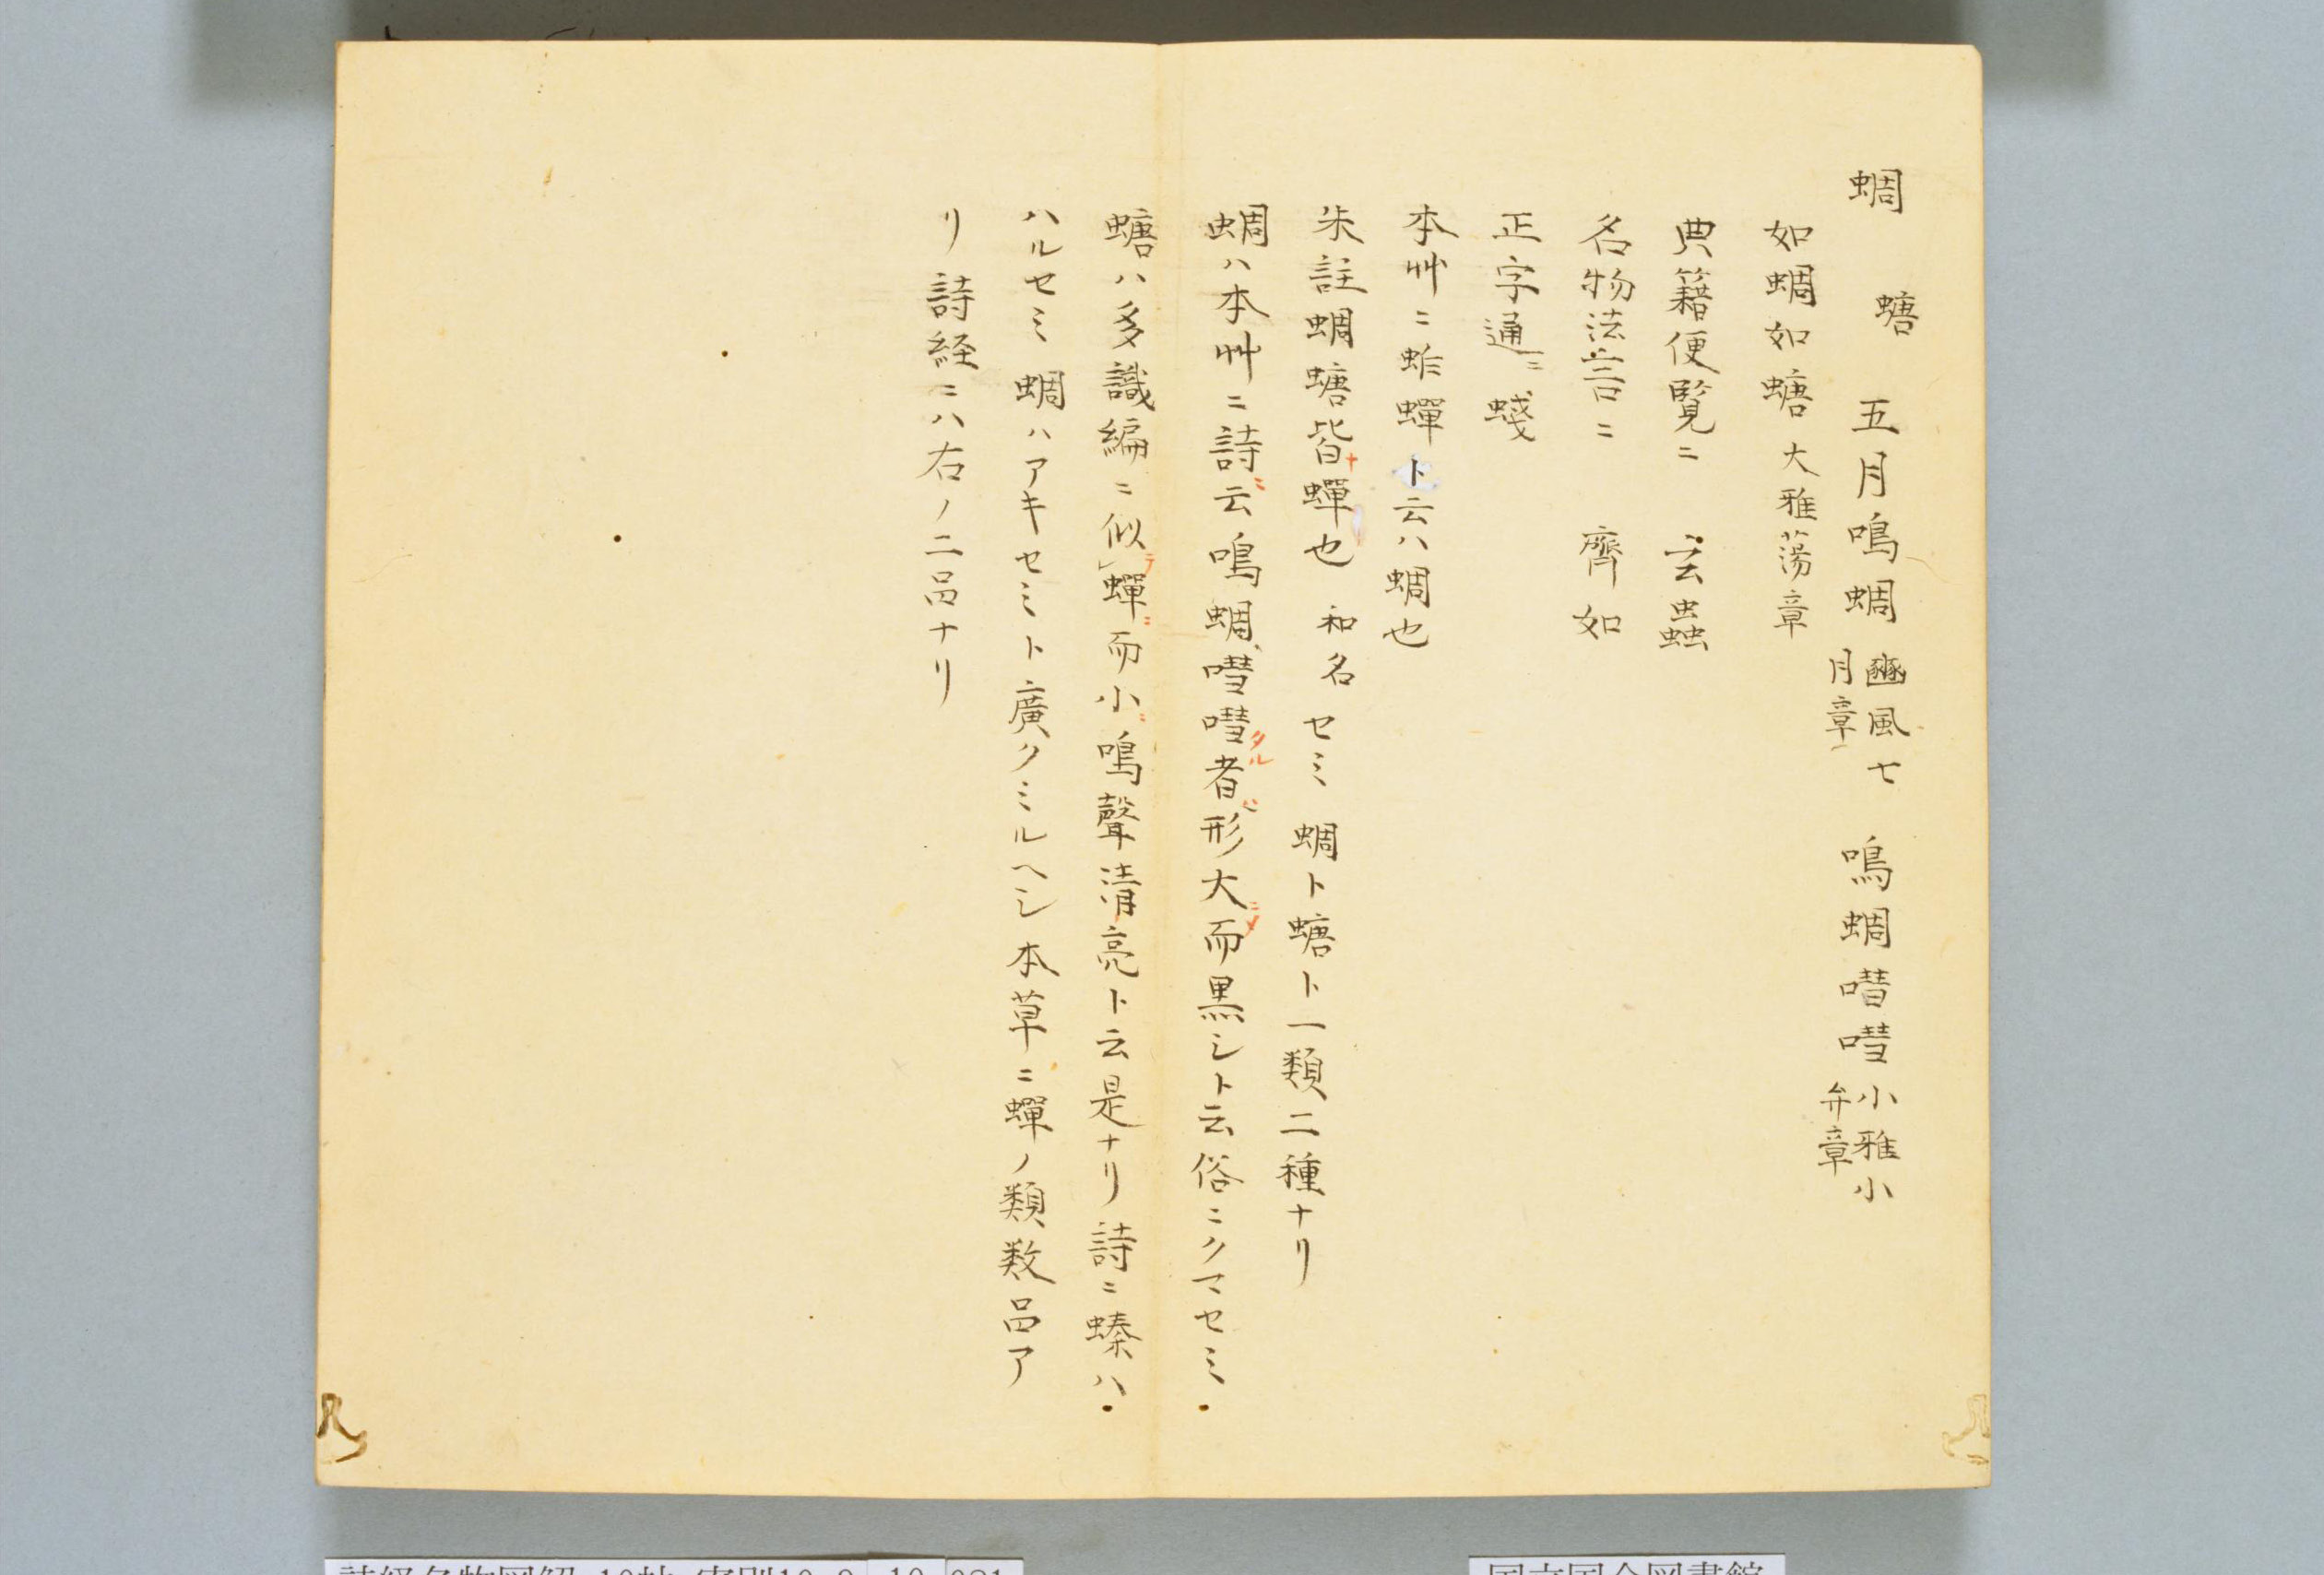 蜩　螗　五月鳴蜩 豳風七
月章　鳴蜩嘒嘒 小雅小
弁章
如蜩如螗 大雅蕩章
典籍便覧ニ　玄蟲
名物法言ニ　齊如
正字通ニ　蝬
本艸ニ蚱蟬ト云ハ蜩也
朱註蜩螗皆ナ蟬也　和名セミ　蜩ト螗ト一類二種ナリ
蜩ハ本艸ニ詩ニ云鳴蜩嘒嘒タル者ハ形大ニメ而黒シト云俗ニクマセミ
螗ハ多識編ニ似テ蟬ニ而小ニ鳴聲清亮ト云是ナリ詩ニ螓ハ
ハルセミ 蜩ハアキセミト廣クミルヘシ本草ニ蟬ノ類数品ア
リ詩経ニハ右ノ二品ナリ
国立国会図書館